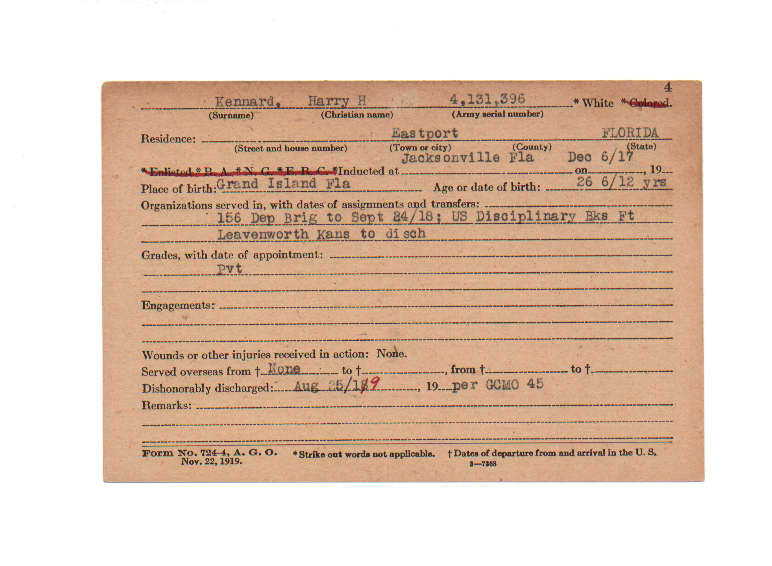 4
Kennard, Harry H 4,131,396 * White * Colored.
(Surname) (Christian name) (Army serial number)
Residence: Eastport FLORIDA
(Street and house number) (Town or city) (County) (State)
Jacksonville Fla Dec 6/17
* Enlisted * R. A. * N. G. * E. R. C. * Inducted at on , 19
Place of birth: Grand Island Fla Age or date of birth: 26 6/12 yrs
Organizations served in, with dates of assignments and transfers:
156 Dep Brig to Sept 24/18; US Disciplinary Bks Ft
Leavenworth Kans to disch
Grades, with date of appointment:
Pvt
Engagements:
Wounds or other injuries received in action: None.
Served overseas from † None to † , from † to †
Dishonorably discharged: Aug 25/19 , 19 per GCMO 45
Remarks:
Form No. 724-4, A. G. O. * Strike out words not applicable. † Dates of departure from and arrival in the U. S.
Nov. 22, 1919. 3—7368